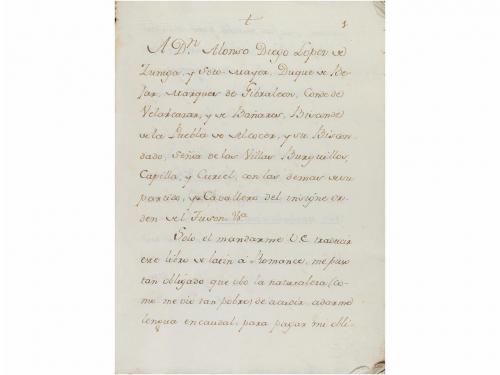 t 1
A D.n Alonso Diego Lopez de
Zuniga, y Soto-Mayor, Duque de Be-
jar, Marques de Gibraleon, Conde de
Velalcazar, y de Bañares, Bisconde
de la Puebla de Alcocer, y su Biscon-
dado, Señor de las Villas Burguillos,
Capilla, y Curiel, con las demas de su
partido, y Cavallero del insigne or-
den del Tuson &a
Solo el mandarme V.E. traducir
este libro de latin â Romance, me puso
tan obligado que ubo la naturaleza (co-
mo me vio tan pobre) de acudir a darme
lengua en caudal, para pagar mi obli-